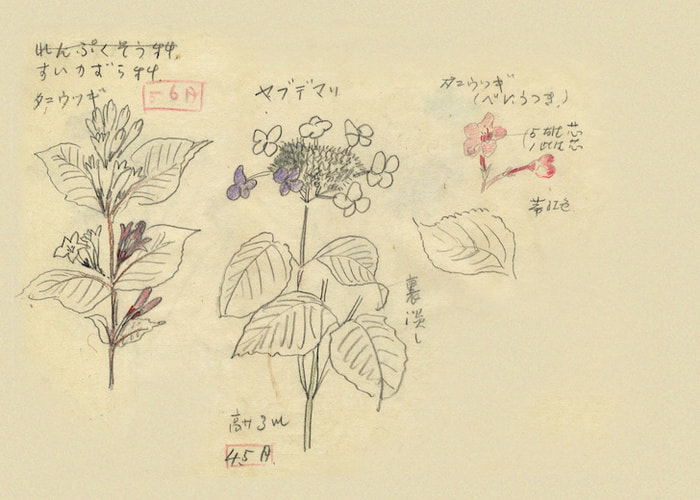 れんぷくそう科
すいかずら科
タニウツギ
5-6月
ヤブデマリ
高サ3m
4.5月
裏淡し
タニウツギ
(べにうつぎ)
5 雄芯
1 雌芯
蕾紅色